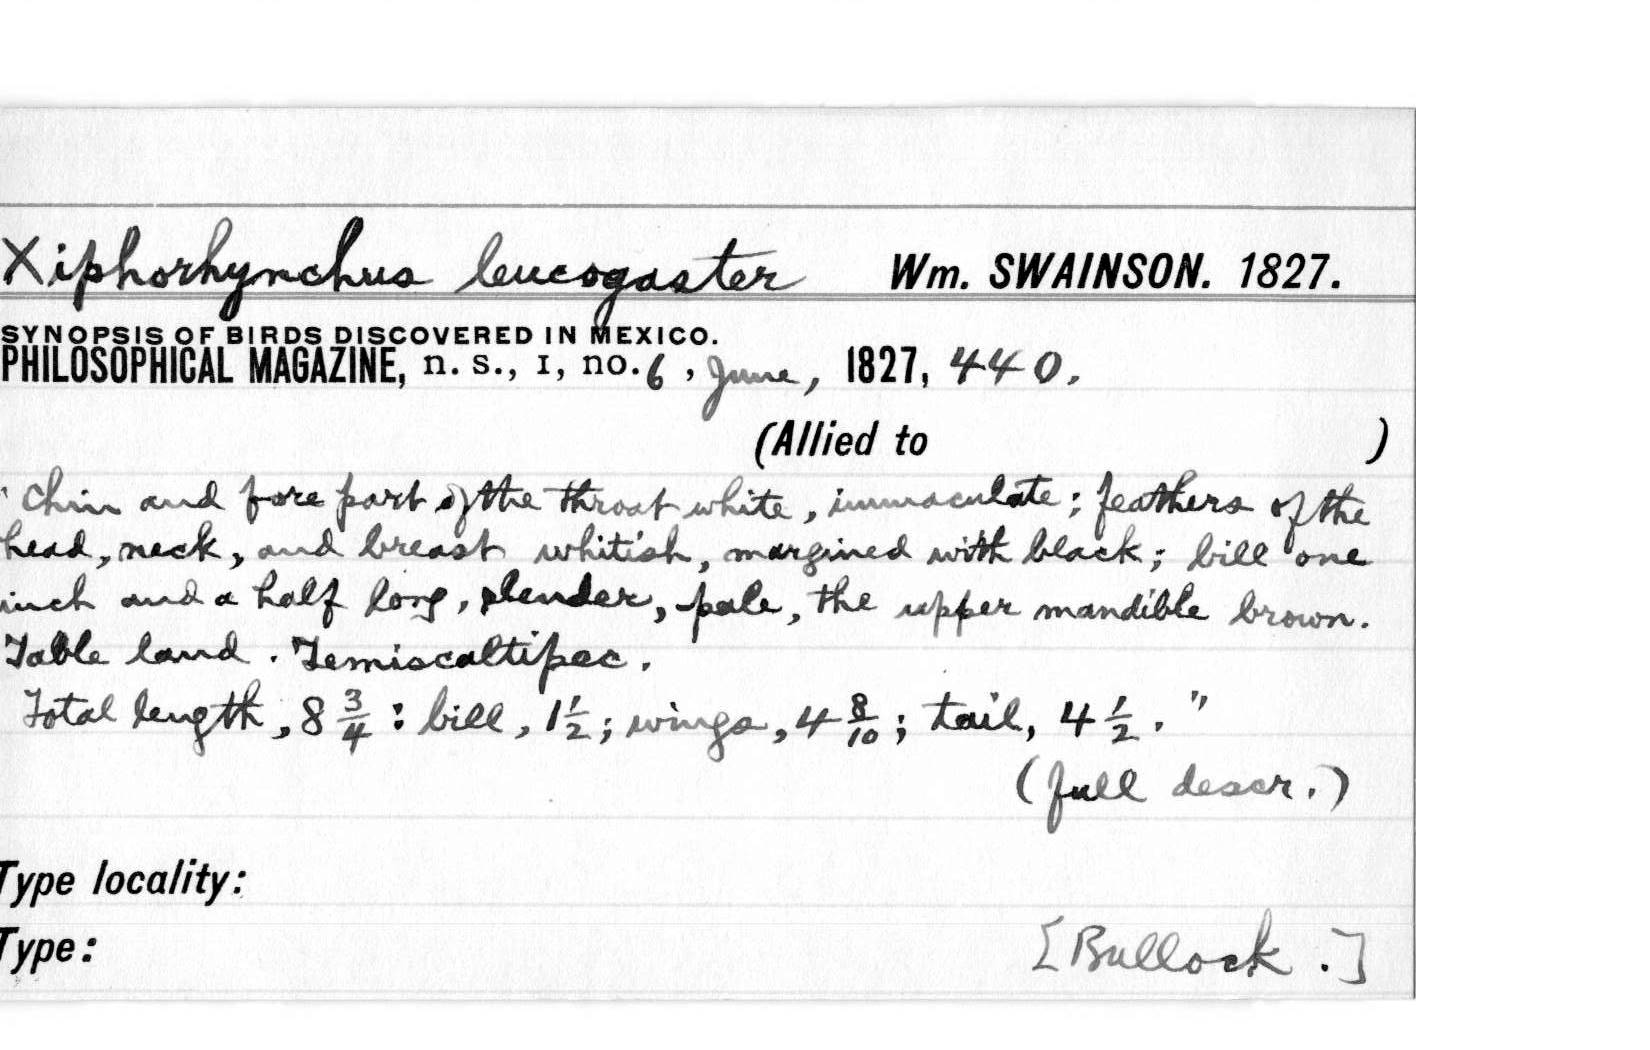 Xiphorhynchus leucogaster Wm. SWAINSON. 1827.
SYNOPSIS OF BIRDS DISCOVERED IN MEXICO.
PHILOSOPHICAL MAGAZINE, n. s., I, no. 6, June, 1827, 440.
(Allied to )
" Chin and fore part of the throat white, immaculate; feathers of the
head, neck, and breast whitish, margined with black; bill one
inch and a half long, slender, pale, the upper mandible brown.
Table land. Temiscaltipec.
Total length, 8 3/4 : bill, 1 1/2; wings, 4 8/10; tail, 4 1/2. "
(full descr.)
Type locality:
Type: [Bullock.]